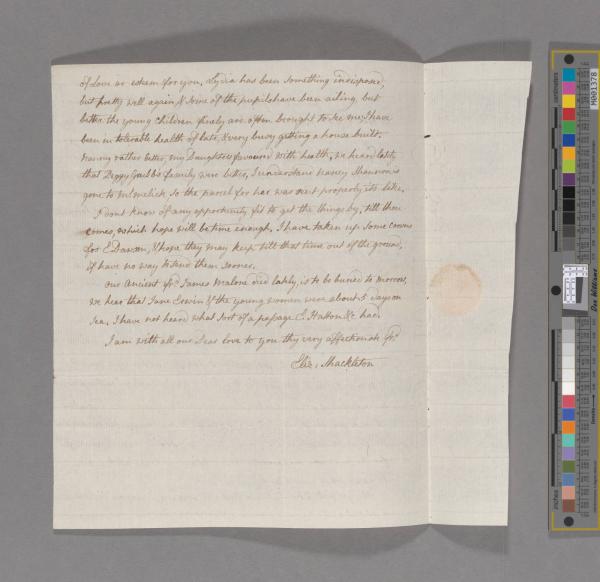 of Love or esteem for you, Lydia has been something indisposed,
but pretty well again, & some of the pupils have been ailing but
better. the young Children finely are often brought to see me, I have
been in tolerable health of late, & very busy getting a house built.
Nancy rather better, my Daughters favoured with health, we heard lately
that family were better, I understand Nancy Shannon is
gone to so the parcel for her was sent properly its like.
I dont know of any opportunity fit to get the things by, till thou
comes, which hope will be time enough, I have taken up some
for E Dawson, & hope they may keep till that time out of the ground,
if have no way to send them sooner.
our Ancient frd. James Malone died lately, is to be buried to morrow,
we hear that Jane Erwin & the young women were about 5 days on
Sea, I have not heard what sort of a passage E. Hatton &c had.
I am with all our Dear love to you thy very affectionate frd.
Eliz. Shackleton
M001378
centimeters
inches